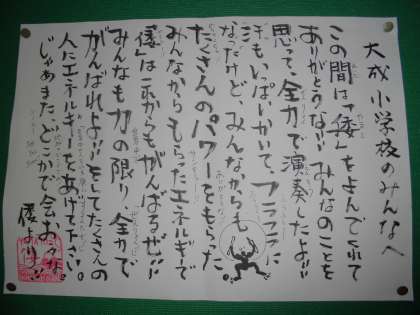 大成小学校のみんなへ
この間は「倭」をよんでくれて
ありがとうな!!みんなのことを
思って、全力で演奏したよ!!
汗もいっぱいかいて、フラフラに
なったけど、みんなからも
たくさんのパワーをもらった。
みんなからもらったエネルギーで
「倭」は、これからもがんばるぜ!!
みんなも力の限り全力で
がんばれよ!!そしてたくさんの
人にエネルギーをあげて下さい。
じゃあまた、どこかで会おうな。
倭より!!